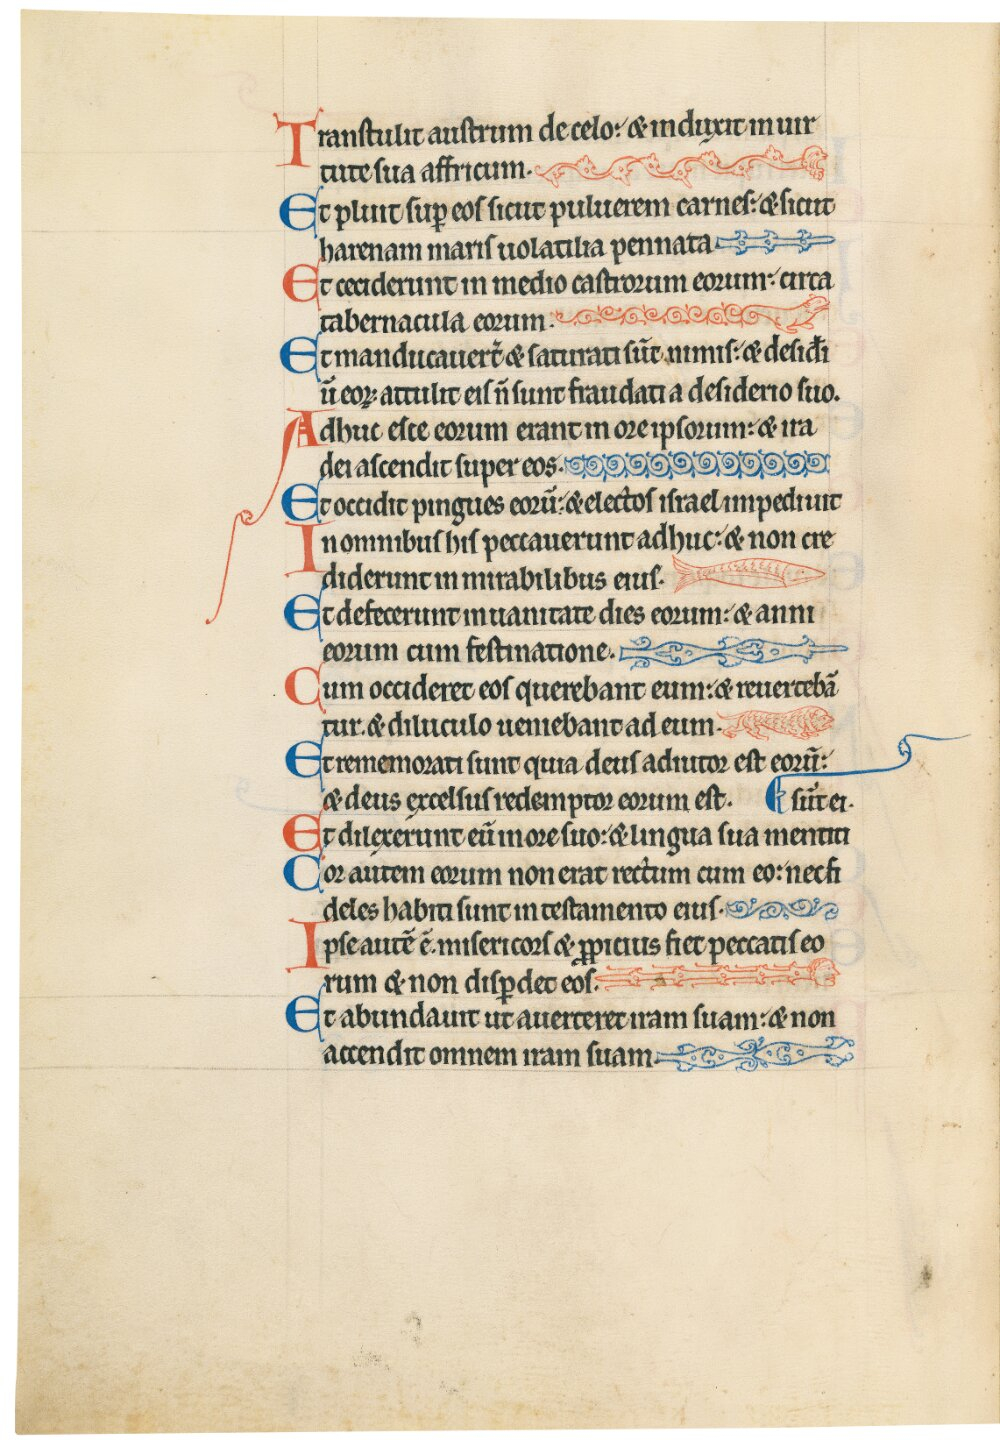 Transtulit austrum de celo: & induxit in uir
tute sua affricum.
Et pluit suꝑ eos sicut puluerem carnes: & sicut
harenam maris uolatilia pennata
Et ceciderunt in medio castrorum eorum: circa
tabernacula eorum.
Et manducauer̄t & saturati sūt nimis: & desid̄i
ū eoꝝ attulit eis n̄ sunt fraudati a desiderio suo.
Adhuc esce eorum erant in ore ipsorum: & ira
dei ascendit super eos.
Et occidit pingues eorū: & electos israel impediuit
In omnibus his peccauerunt adhuc: & non cre
diderunt in mirabilibus eius.
Et defecerunt in uanitate dies eorum: & anni
eorum cum festinatione.
Cum occideret eos querebant eum: & reuertebā
tur. & diluculo ueniebant ad eum.
Et rememorati sunt quia deus adiutor est eorū:
& deus excelsus redemptor eorum est. ¶ sūt ei.
Et dilexerunt eū in ore suo: & lingua sua mentiti
Cor autem eorum non erat rectum cum eo: nec fi
deles habiti sunt in testamento eius.
Ipse autē ē. misericors & ꝓpicius fiet peccatis eo
rum & non disꝑdet eos.
Et abundauit ut auerteret iram suam: & non
accendit omnem iram suam.